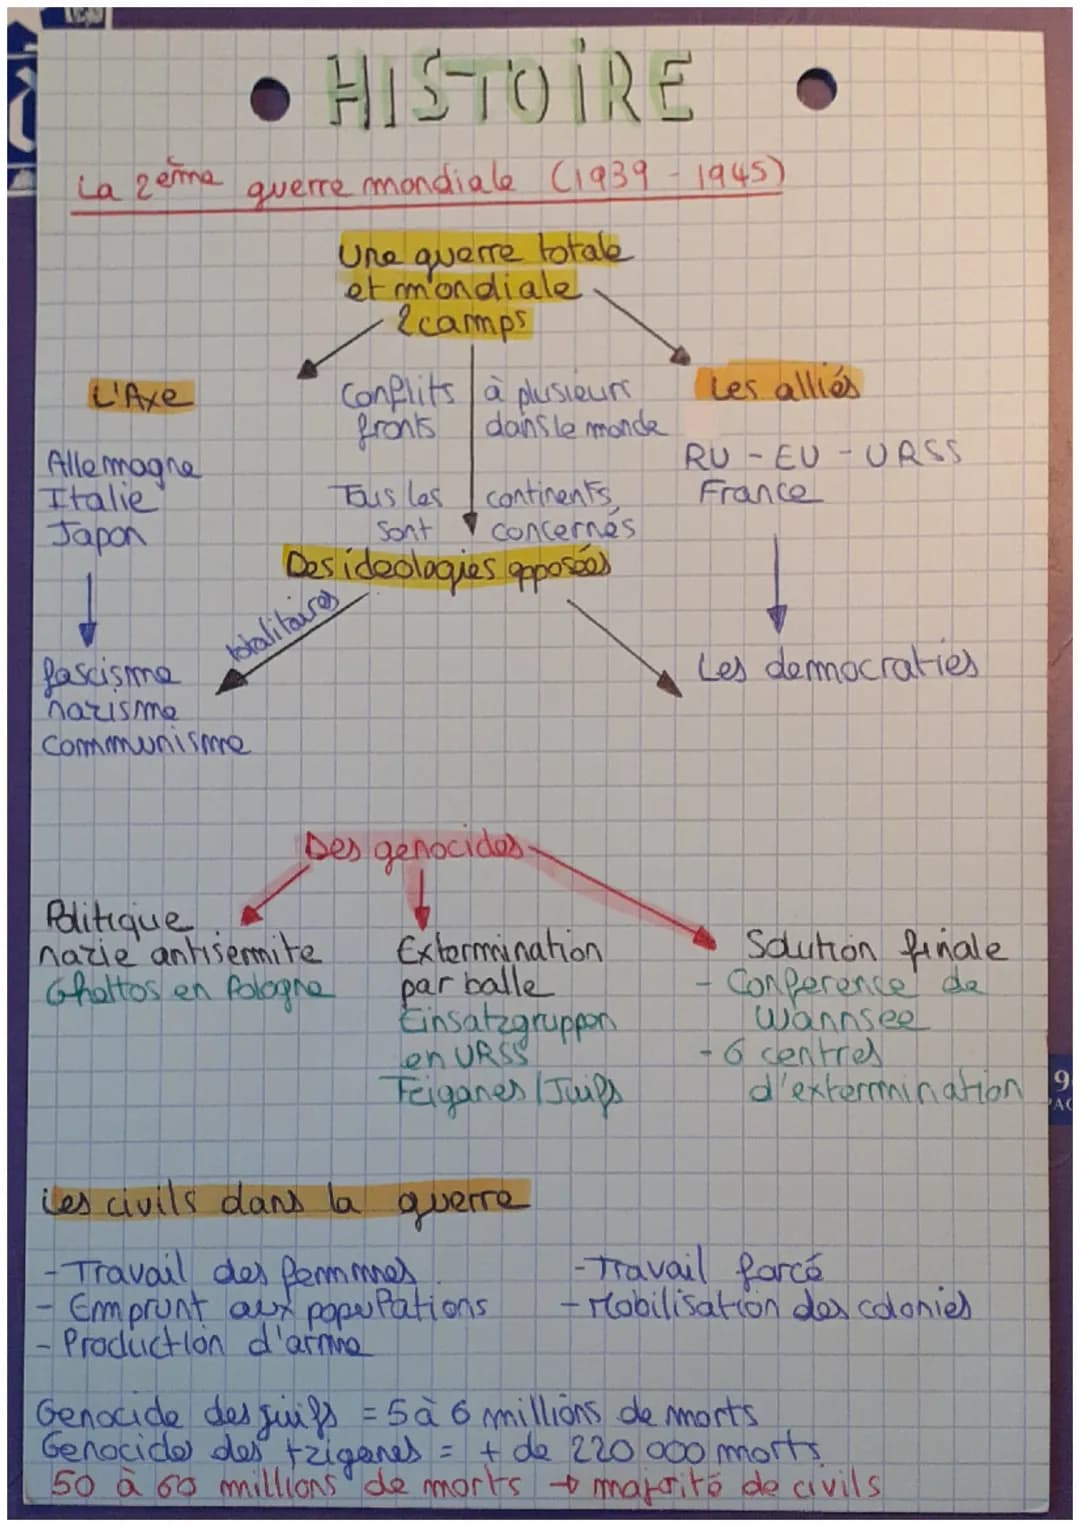 HISTOIRE
La 2ème guerre mondiale (1939 - 1945)
Une guerre totale
et mondiale
2 camps
L'Axe
Allemagne
Italie
Japon
Conflits à plusieurs
fronts dans le monde
Tous les continents
sont concernés
Les alliés
RU - EU - URSS
France
Des ideologies opposées
totalitaires
fascisme
nazisme
communisme
Les democraties
Des genocides
Politique
nazie antisemite
Ghettos en Pologne
Extermination
par balle
Einsatzgruppen
en URSS
Tziganes / Juifs
Solution finale
- Conference de
Wannsee
- 6 centres
d'extermination
9
Les civils dans la guerre
- Travail des femmes
- Emprunt aux populations
- Production d'arme
- Travail forcé
- Mobilisation des colonies
Genocide des juifs = 5 à 6 millions de morts
Genocide des tziganes = + de 220 000 morts
50 à 60 millions de morts → majorité de civils